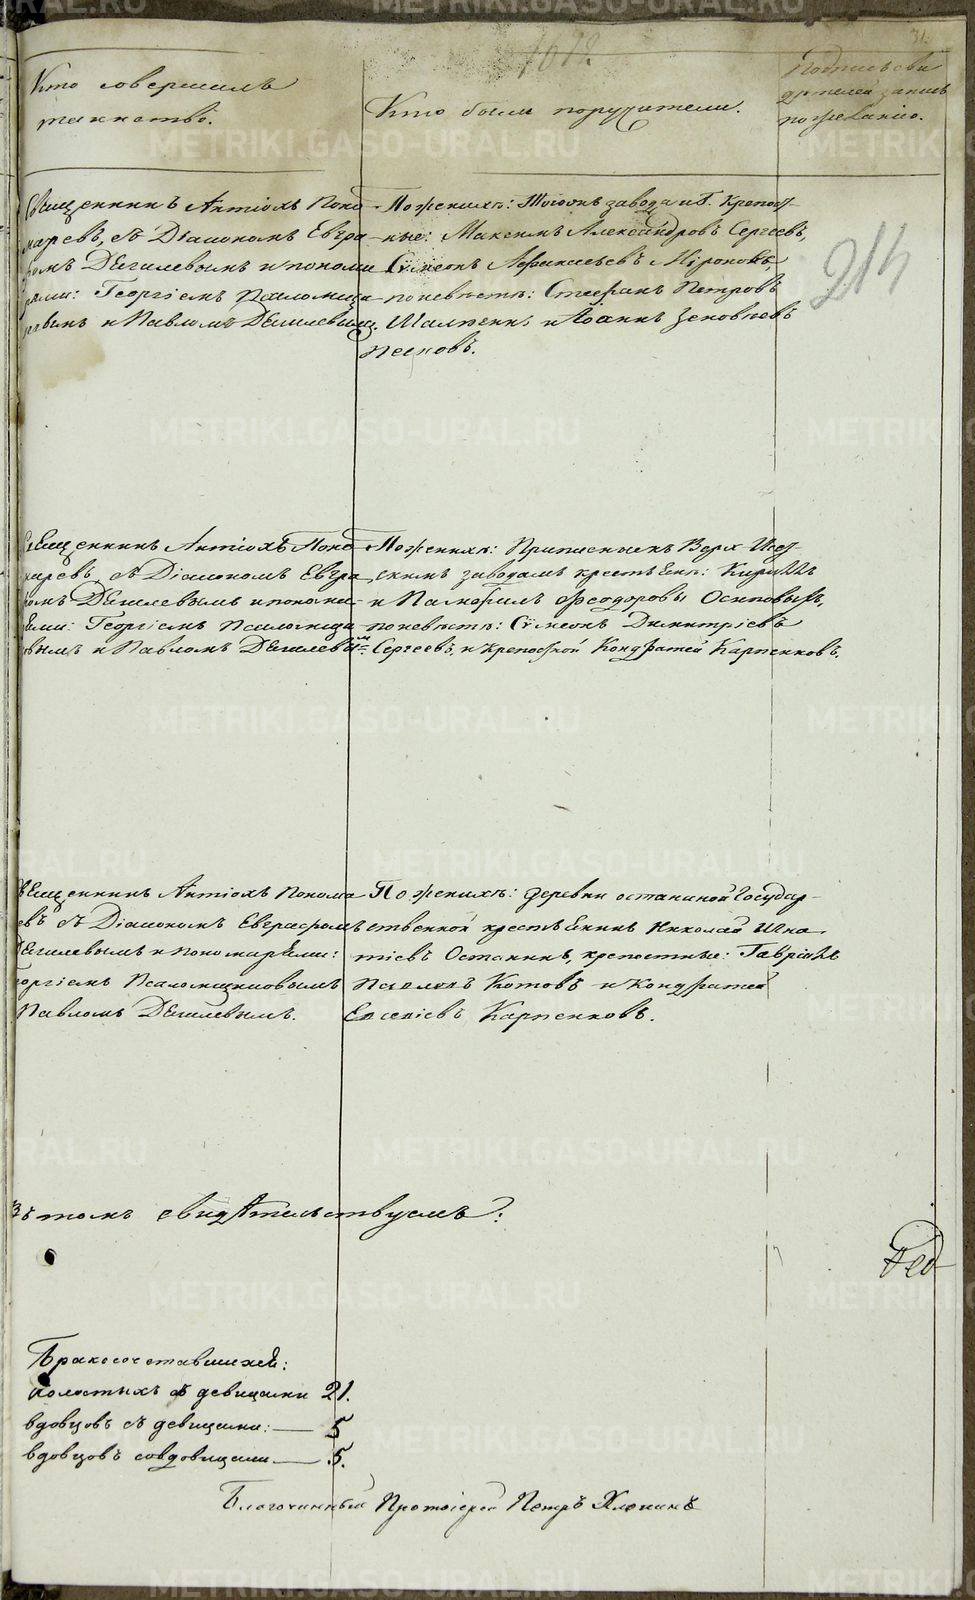 31.
1012.
Кто совершилъ
таинство.
Кто были поручители.
Подпись сви
дѣтелей запись
по желанію.
Священникъ Антіохъ Поно
маревъ, съ Діакономъ Евгра
фомъ Дягилевымъ и понома
рями: Георгіемъ Псаломщи
ковымъ и Павломъ Дягилевымъ.
По женихѣ: Того же завода и Г. Крѣпост
ные: Максимъ Александровъ Сергѣевъ,
Сѵмеонъ Афанасьевъ Міроновъ,
по невѣстѣ: Стефанъ Петровъ
и Іоаннъ Зеновіевъ
Песковъ.
214
Священникъ Антіохъ Поно
маревъ, съ Діакономъ Евгра
фомъ Дягилевымъ и понома
рями: Георгіемъ Псаломщи
ковымъ и Павломъ Дягилевымъ.
По женихѣ: Приписные къ Верх Исет
скимъ заводамъ крестьяне: Кириллъ
и Памфилъ Феодоровы Осиповыхъ,
по невѣстѣ: Сѵмеонъ Димитріевъ
Сергѣевъ, и крепостной Кондратей Карпенковъ.
Священникъ Антіохъ Понома
евъ съ Діакономъ Евграфомъ
Дягилевымъ и пономарями:
Георгіемъ Псаломщиковымъ
Павломъ Дягилевымъ.
По женихѣ: деревни останиной Государ
ственной крестьянинъ Николай Игна
тіевъ Останинъ, крепостные: Гавріилъ
Павловъ Котовъ и Кондратей
Евсевіевъ Карпенковъ.
въ томъ свидѣтельствуемъ:
Бракосочетавшихся:
холостыхъ съ девицами 21.
вдовцовъ съ девицами: — 5
вдовцовъ со вдовицами — 5.
Благочинный Протоіерей Петръ Хлопинъ
METRIKI.GASO-URAL.RU